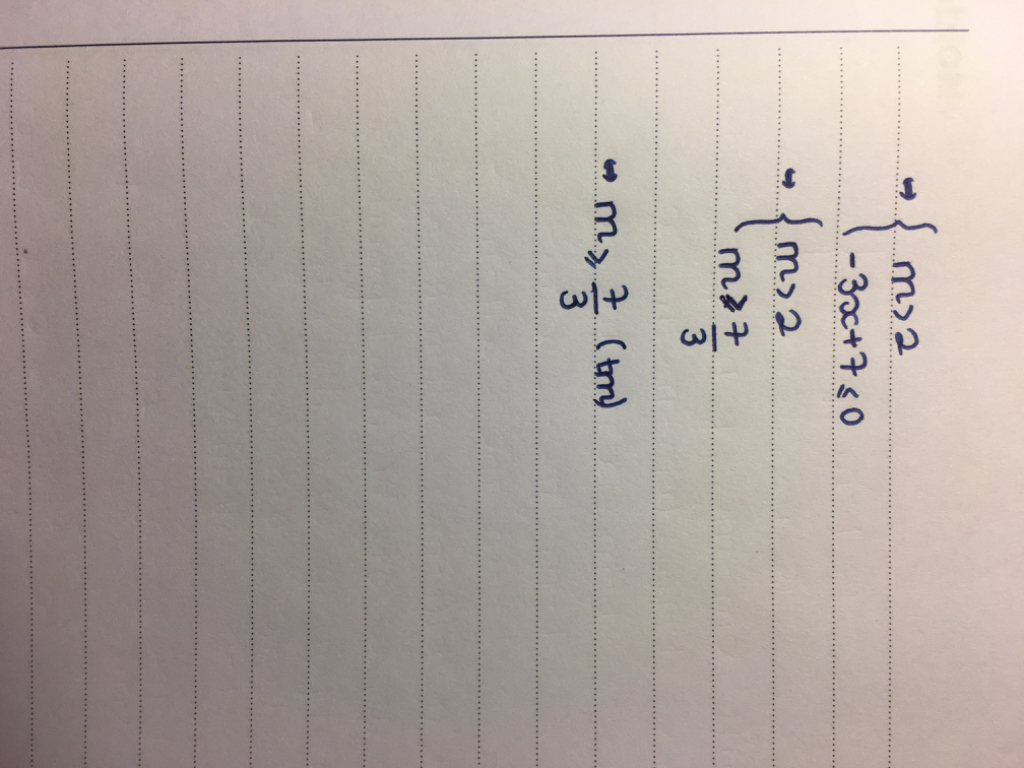 ⇔ { m > 2
-3x + 7 ≤ 0
⇔ { m > 2
m ≥ 7/3
⇔ m ≥ 7/3 (tm)